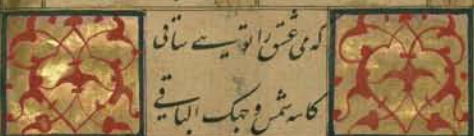 که می عشق را تویی ساقی
کاسه شمس وجهک الباقی